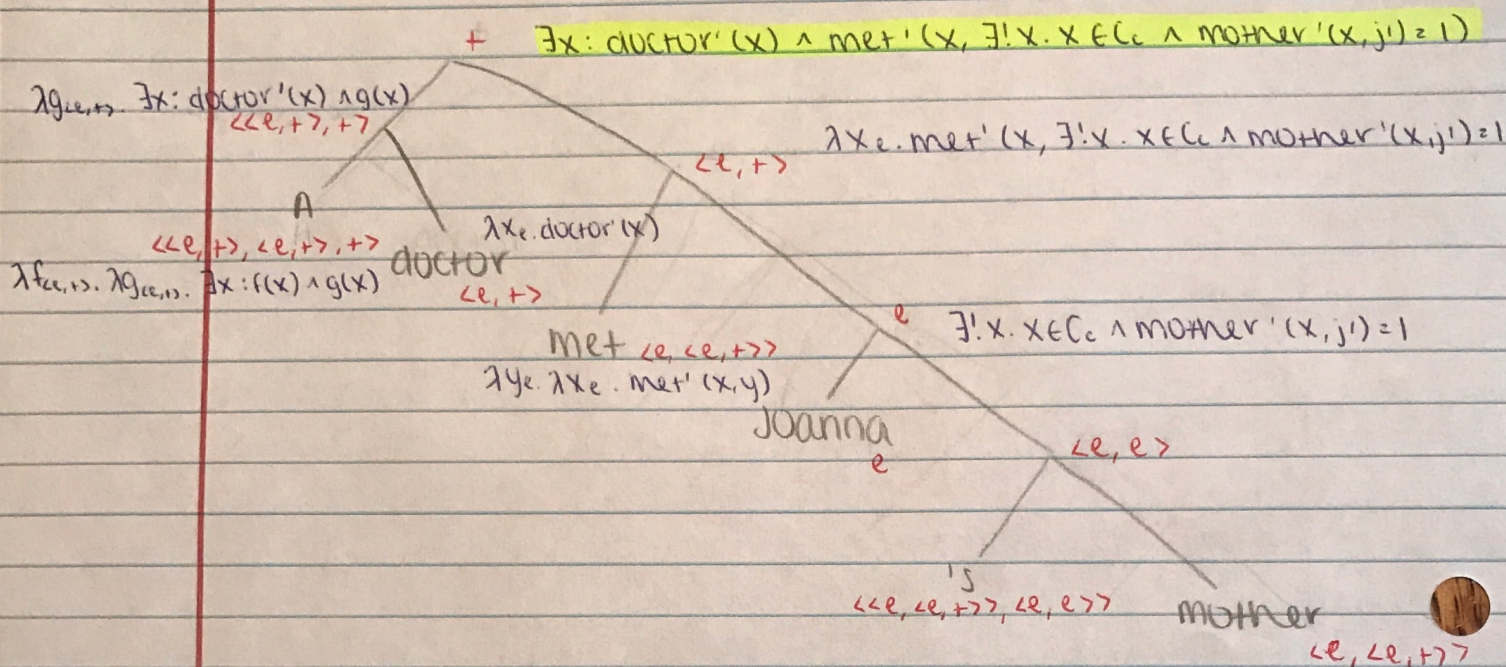 t ∃x: doctor'(x) ∧ met'(x, ∃!x. x ∈ Cc ∧ mother'(x,j')=1)
λg<e,t>. ∃x: doctor'(x) ∧ g(x)
<<e,t>,t>
λxe. met'(x, ∃!x. x ∈ Cc ∧ mother'(x,j')=1
<e,t>
A
λxe. doctor'(x)
<<e,t>, <e,t>,t>
doctor
λf<e,t>. λg<e,t>. ∃x: f(x) ∧ g(x)
<e,t>
e ∃!x. x ∈ Cc ∧ mother'(x,j')=1
met <e, <e,t>>
λye. λxe. met'(x,y)
Joanna
e
<e, e>
's
<<e, <e,t>>, <e, e>>
mother
<e, <e,t>>